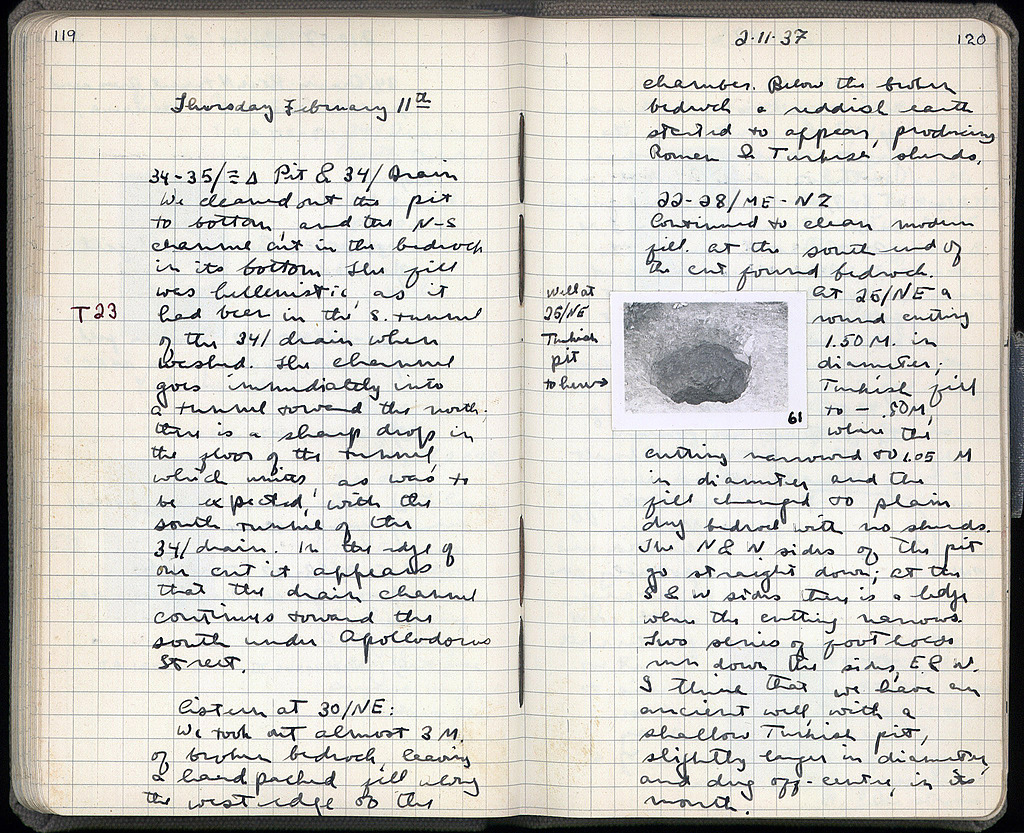 119
Thursday February 11th
34-35/Ξ Δ Pit & 34/ Drain
We cleaned out the pit
to bottom, and the N-S
channel cut in the bedrock
in its bottom. The fill
was hellenistic, as it
T23
had been in the S. tunnel
of the 34/ drain when
washed. The channel
goes immediately into
a tunnel toward the north.
there is a sharp drop in
the floor of the tunnel
which unites, as was to
be expected, with the
south tunnel of the
34/ drain. In the edge of
our cut it appears
that the drain channel
continues toward the
south under Apollodorus
Street.
Cistern at 30/NE:
We took out almost 3 M.
of broken bedrock leaving
a hard packed fill along
the west edge of the
2-11-37
120
chamber. Below the broken
bedrock a reddish earth
started to appear, producing
Roman & Turkish sherds.
22-28/ME-NZ
Continued to clean modern
fill. At the south end of
the cut found bedrock.
Well at
25/NE
Turkish
pit
to here→
61
At 25/NE a
round cutting
1.50 M. in
diameter;
Turkish fill
to -.80M,
where the
cutting narrowed to 1.05 M
in diameter and the
fill changed to plain
dug bedrock with no sherds.
The N & sides of the pit
go straight down; at the
S & W sides there is a ledge
where the cutting narrows.
Two series of footholds
run down the sides, E & W.
I think that we have an
ancient well, with a
shallow Turkish pit,
slightly larger in diameter,
and dug off-centre, in its
mouth.